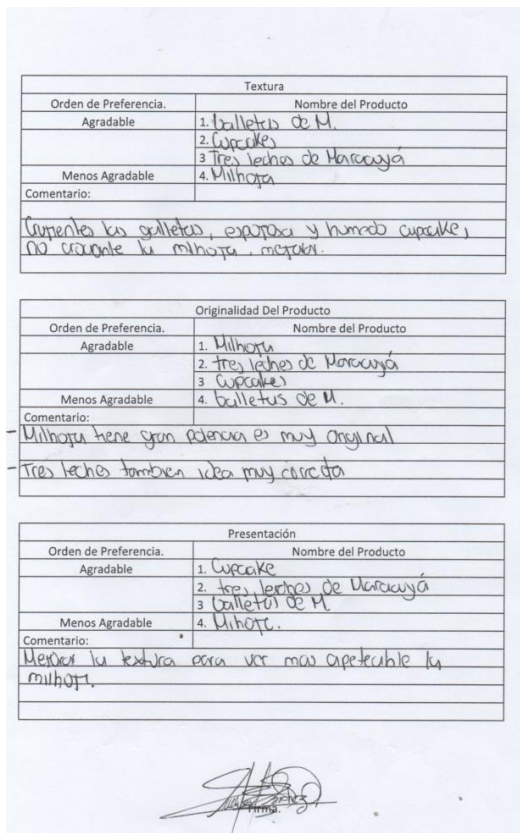 Textura
Orden de Preferencia. Nombre del Producto
Agradable 1. Galletas de M.
2. Cupcakes
3 Tres leches de Maracuyá
Menos Agradable 4. Milhoja
Comentario:
Crujientes las galletas, esponjosa y humedo cupcake,
no crocante la milhoja, mejorar.
Originalidad Del Producto
Orden de Preferencia. Nombre del Producto
Agradable 1. Milhoja
2. tres leches de Maracuyá
3 Cupcakes
Menos Agradable 4. Galletas de M.
Comentario:
- Milhoja tiene gran potencia es muy original
- Tres leches tambien idea muy correcta
Presentación
Orden de Preferencia. Nombre del Producto
Agradable 1. Cupcake
2. tres leches de Maracuyá
3 Galletas de M.
Menos Agradable 4. Milhoja.
Comentario:
Mejorar la textura para ver mas apetecible la
milhoja.
Firma.